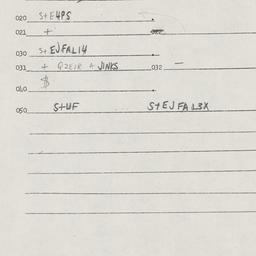 020 S+E4PS
021 +
030 S+EJFAL14
031 + QZEIR A JINKS 032 —
040 $
050 S+UF S+EJFAL3X